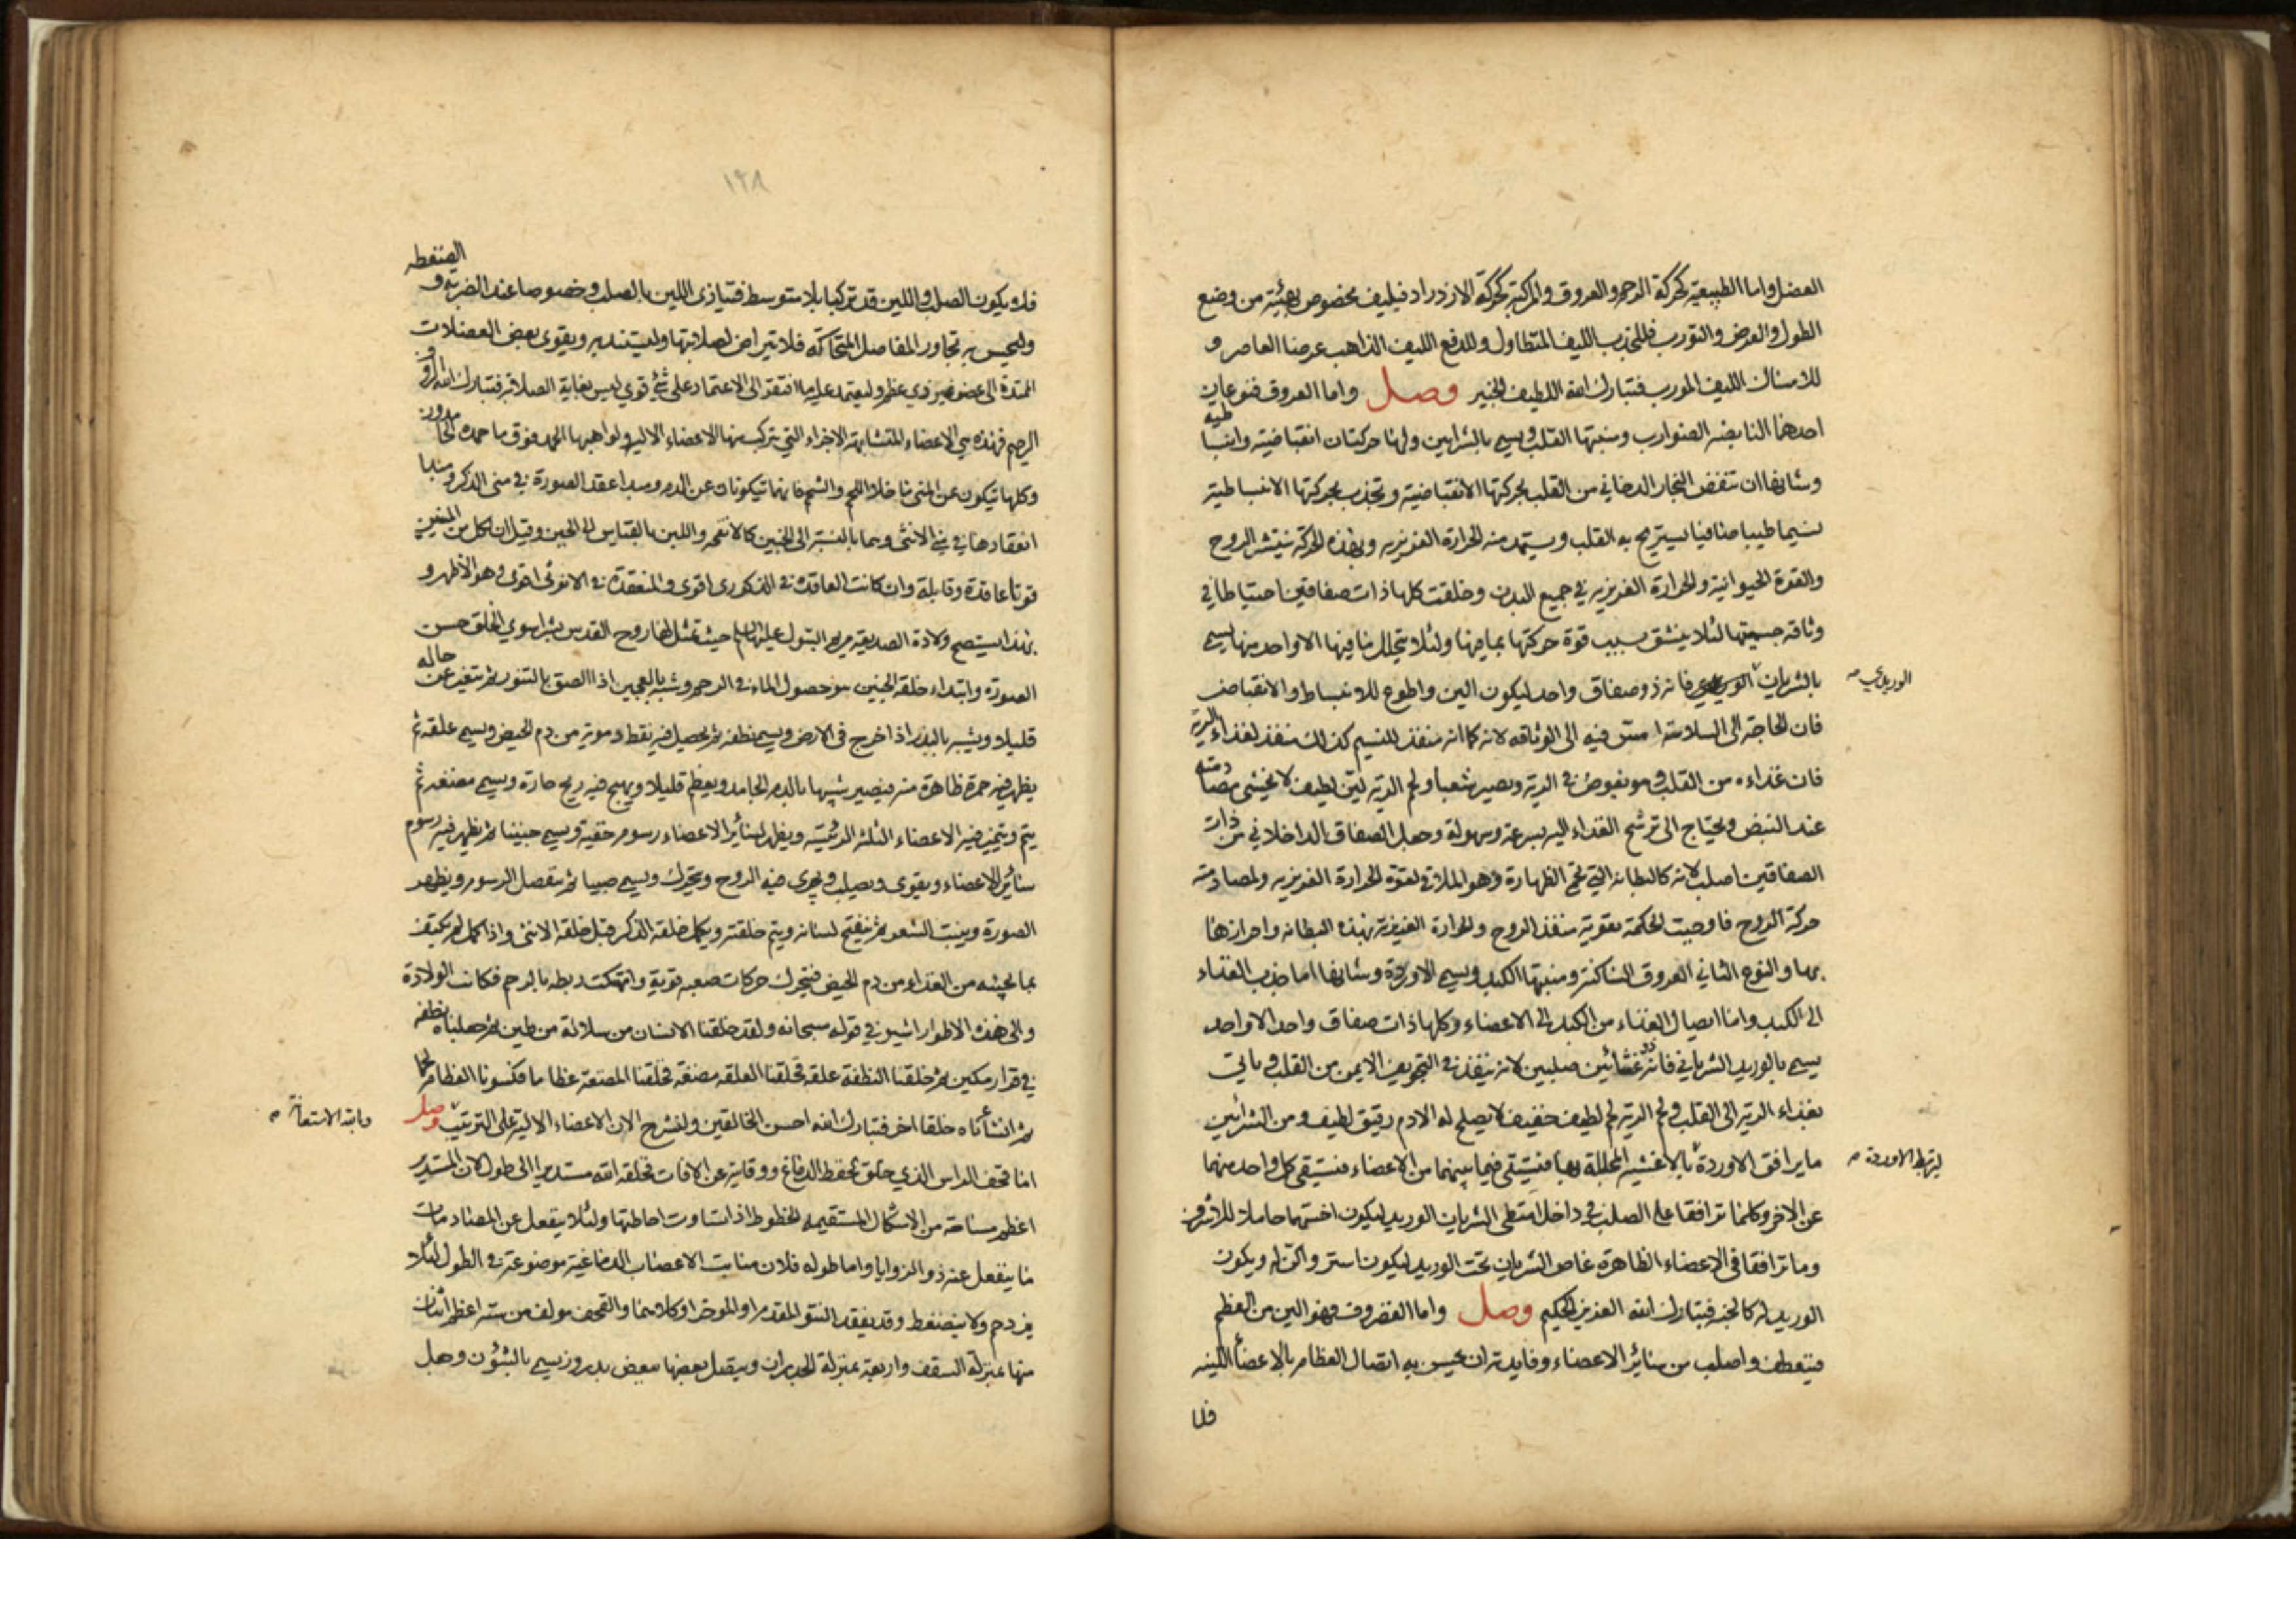 العضل واما الطبيعية كحركة الرحم والعروق والمركبة كحركة الازدراد فبليف مخصوص بهيئة من وضع
الطول والعرض والتورب فللجذب الليف المتطاول وللدفع الليف الذاهب عرضا العاصر و
للامساك الليف المورب فتبارك الله اللطيف الخبير وصل واما العروق فنوعان
احدهما النابضه الضوارب ومنبتها القلب ويسمى بالشرايين ولها حركتان انقباضية وانبساطيه
وشانها ان تنفض البخار الدخاني من القلب بحركتها الانقباضية وتجذب بحركتها الانبساطية
نسيما طيبا صافيا يستريح به القلب ويستمد منه الحرارة الغريزيه وبهذه الحركة ينتشر الروح
والقوة الحيوانية والحرارة الغريزيه في جميع البدن وخلقت كلها ذات صفاقين احتياطا في
وثاقه جسميتها لئلا ينشق بسبب قوة حركتها بما فيها ولئلا يتحلل ما فيها الا واحد منها يسمى
بالشريان الوريدي فانه ذو صفاق واحد ليكون الين واطوع للانبساط والانقباض
الوريدي
فان الحاجة الى السلاسة امس فيه الى الوثاقه لانه كما انه منفذ للنسيم كذلك منفذ لغذاء الرية
فان غذاءه من القلب وهو يغوص في الرية ويصير شعبا ولحم الرية لين لطيف لا يخشى مصادمته
عند النبض ويحتاج الى ترشح الغذاء اليه بسرعة وسهولة وجعل الصفاق الداخلاني من ذات
الصفاقين اصلب لانه كالبطانه التي تحمي الظهارة وهو الملاقي لقوة الحرارة الغريزيه ولمصادمته
حركة الروح فاوجبت الحكمة تقوية منفذ الروح والحرارة الغريزية بهذه البطانه واحرازها
بها والنوع الثاني العروق الساكنة ومنبتها الكبد ويسمى الاوردة وشانها اما جذب الغذاء
الى الكبد واما ايصال الغذاء من الكبد الى الاعضاء وكلها ذات صفاق واحد الا واحد
يسمى بالوريد الشرياني فانه ذو غشائين صلبين لانه ينفذ في التجويف الايمن من القلب وياتي
بغذاء الرية الى القلب ولحم الرية لحم لطيف خفيف لا يصلح له الا دم رقيق لطيف ومن الشرائين
ما يرافق الاوردة بالاغشية المجللة بها فيستقى فيما بينهما من الاعضاء فيستقى كل واحد منهما
لترتبط الاوردة
عن الاخر وكلما ترافقا على الصلب في داخل امتطى الشريان الوريد ليكون اخسهما حاملا للاشرف
وما ترافقا في الاعضاء الظاهرة غاص الشريان تحت الوريد ليكون استر واكن له ويكون
الوريد له كالجنه فتبارك الله العزيز الحكيم وصل واما الغضروف فهو الين من العظم
فينعطف واصلب من سائر الاعضاء وفايدته ان يحسن به اتصال العظام بالاعضاء اللينه
فلا
١٢٨
فلا ويكون الصلب واللين قد تركبا بلا متوسط فيتاذى اللين بالصلب وخصوصا عند الضربة و الضغطه
وليحسن به تجاور المفاصل المتحاكة فلا تتراض لصلابتها وليستند به ويقوى بعض العضلات
الممتدة الى عضو غير ذي عظم وليعتمد عليه ما افتقر الى الاعتماد على شئ قوي ليس بغاية الصلابة فتبارك الله الرؤف
الرحيم فهذه هي الاعضاء المتشابهة الاجزاء التي تتركب منها الاعضاء الاليه ولواهبها الحمد فوق ما حمده الحامدون
وكلها تتكون عن المنى ما خلا اللحم والشحم فانهما تتكونان عن الدم ومبدا عقد الصورة في منى الذكر ومبدا
انعقادها في منى الانثى وهما بالنسبة الى الجنين كالانفحه واللبن بالقياس الى الجبن وقيل ان لكل من المنيين
قوتا عاقدة وقابلة وان كانت العاقدة في الذكورى اقوى والمنعقدة في الانوثى اقوى وهو الاظهر و
بهذا يستصح ولادة الصديقة مريم البتول عليها السلم حيث تمثل لها روح القدس بشرا سوي الخلق حسن
الصورة وابتداء خلقه الجنين هو حصول الماء في الرحم وشبه بالعجين اذا الصق بالتنور ثم تتغير عن حاله
قليلا ويشبه بالبذر اذا اخرج في الارض ويسمى نطفه ثم يحصل فيه نقط دموية من دم الحيض ويسمى علقه ثم
يظهر فيه حمرة ظاهرة منه فيصير شبيها بالدم الجامد ويعظم قليلا ويهيج فيه ريح حارة ويسمى مضغه ثم
يتم ويتميز فيه الاعضاء الثلثه الرئيسة ويظهر لسائر الاعضاء رسوم خفية ويسمى جنينا ثم يظهر فيه رسوم
سائر الاعضاء ويقوى ويصلب ويجرى فيه الروح ويتحرك ويسمى صبيا ثم ينفصل الرسوم ويظهر
الصورة وينبت الشعر ثم ينفتح لسانه ويتم خلقته ويكمل خلقه الذكر قبل خلقه الانثى واذا كمل لم يكتف
بما يجيئه من الغذاء من دم الحيض فيتحرك حركات صعبه قوية وانهتكت ربطه بالرحم فكانت الولادة
والى هذه الاطوار اشير في قوله سبحانه ولقد خلقنا الانسان من سلالة من طين ثم جعلناه نطفه
في قرار مكين ثم خلقنا النطفة علقه فخلقنا العلقه مضغه فخلقنا المضغة عظاما فكسونا العظام لحما
ثم انشأناه خلقا اخر فتبارك الله احسن الخالقين ولنشرح الان الاعضاء الالية على الترتيب وصل
وبالله الاستعانة
اما قحف الراس الذي خلق لحفظ الدماغ ووقاية عن الافات فخلقه الله مستديرا الى طول لان المستدير
اعظم مساحة من الاشكال المستقيمة الخطوط اذا تساوت احاطتها ولئلا ينفعل عن المصادمات
ما ينفعل عنه ذو الزوايا واما طوله فلان منابت الاعصاب الدماغية موضوعة في الطول لئلا
يزدحم ولا ينضغط وقد يفقد النتو المقدم او الموخر او كلاهما والقحف مولف من سته اعظم اثنان
منها بمنزلة السقف واربعة بمنزلة الجدران ويتصل بعضها ببعض بدروز يسمى بالشؤن وجعل